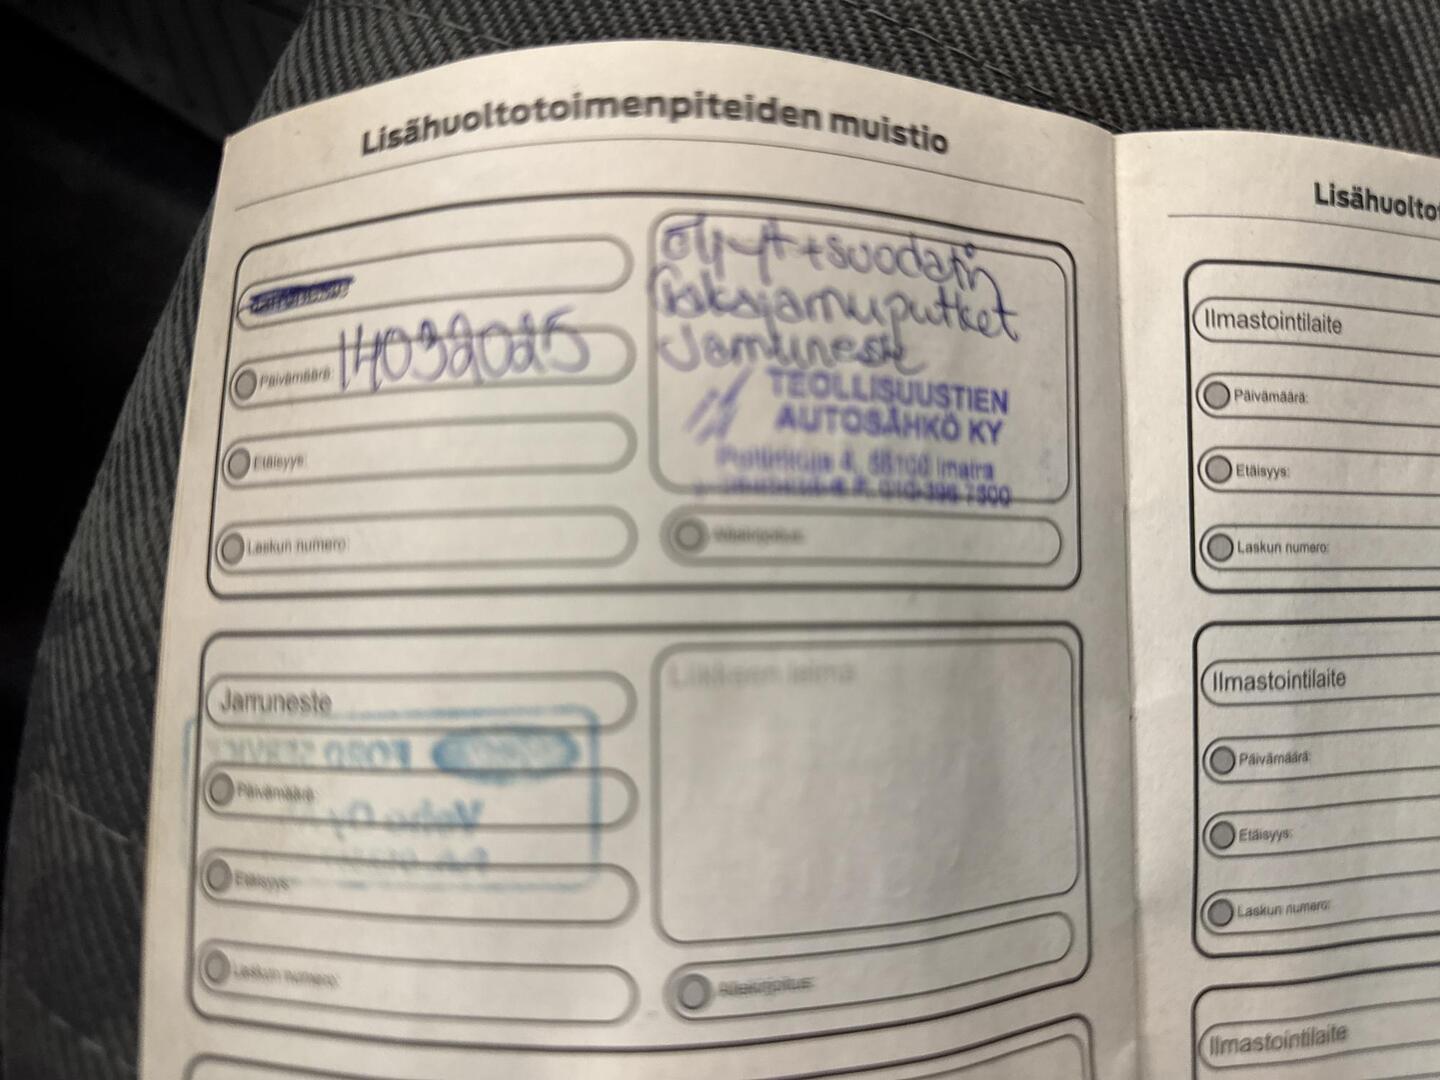 Lisähuoltotoimenpiteiden muistio
Päivämäärä: 14032025
Etäisyys:
Laskun numero:
Öljyt+suodatin
Jarruneste
TEOLLISUUSTIEN
AUTOSÄHKÖ KY
4, 55100 Imatra
010-396 7500
Allekirjoitus:
Jarruneste
Päivämäärä:
Etäisyys:
Laskun numero:
Liikkeen leima
Allekirjoitus:
FORD SERVICE
Veho Oy
Lisähuoltot
Ilmastointilaite
Päivämäärä:
Etäisyys:
Laskun numero:
Ilmastointilaite
Päivämäärä:
Etäisyys:
Laskun numero:
Ilmastointilaite